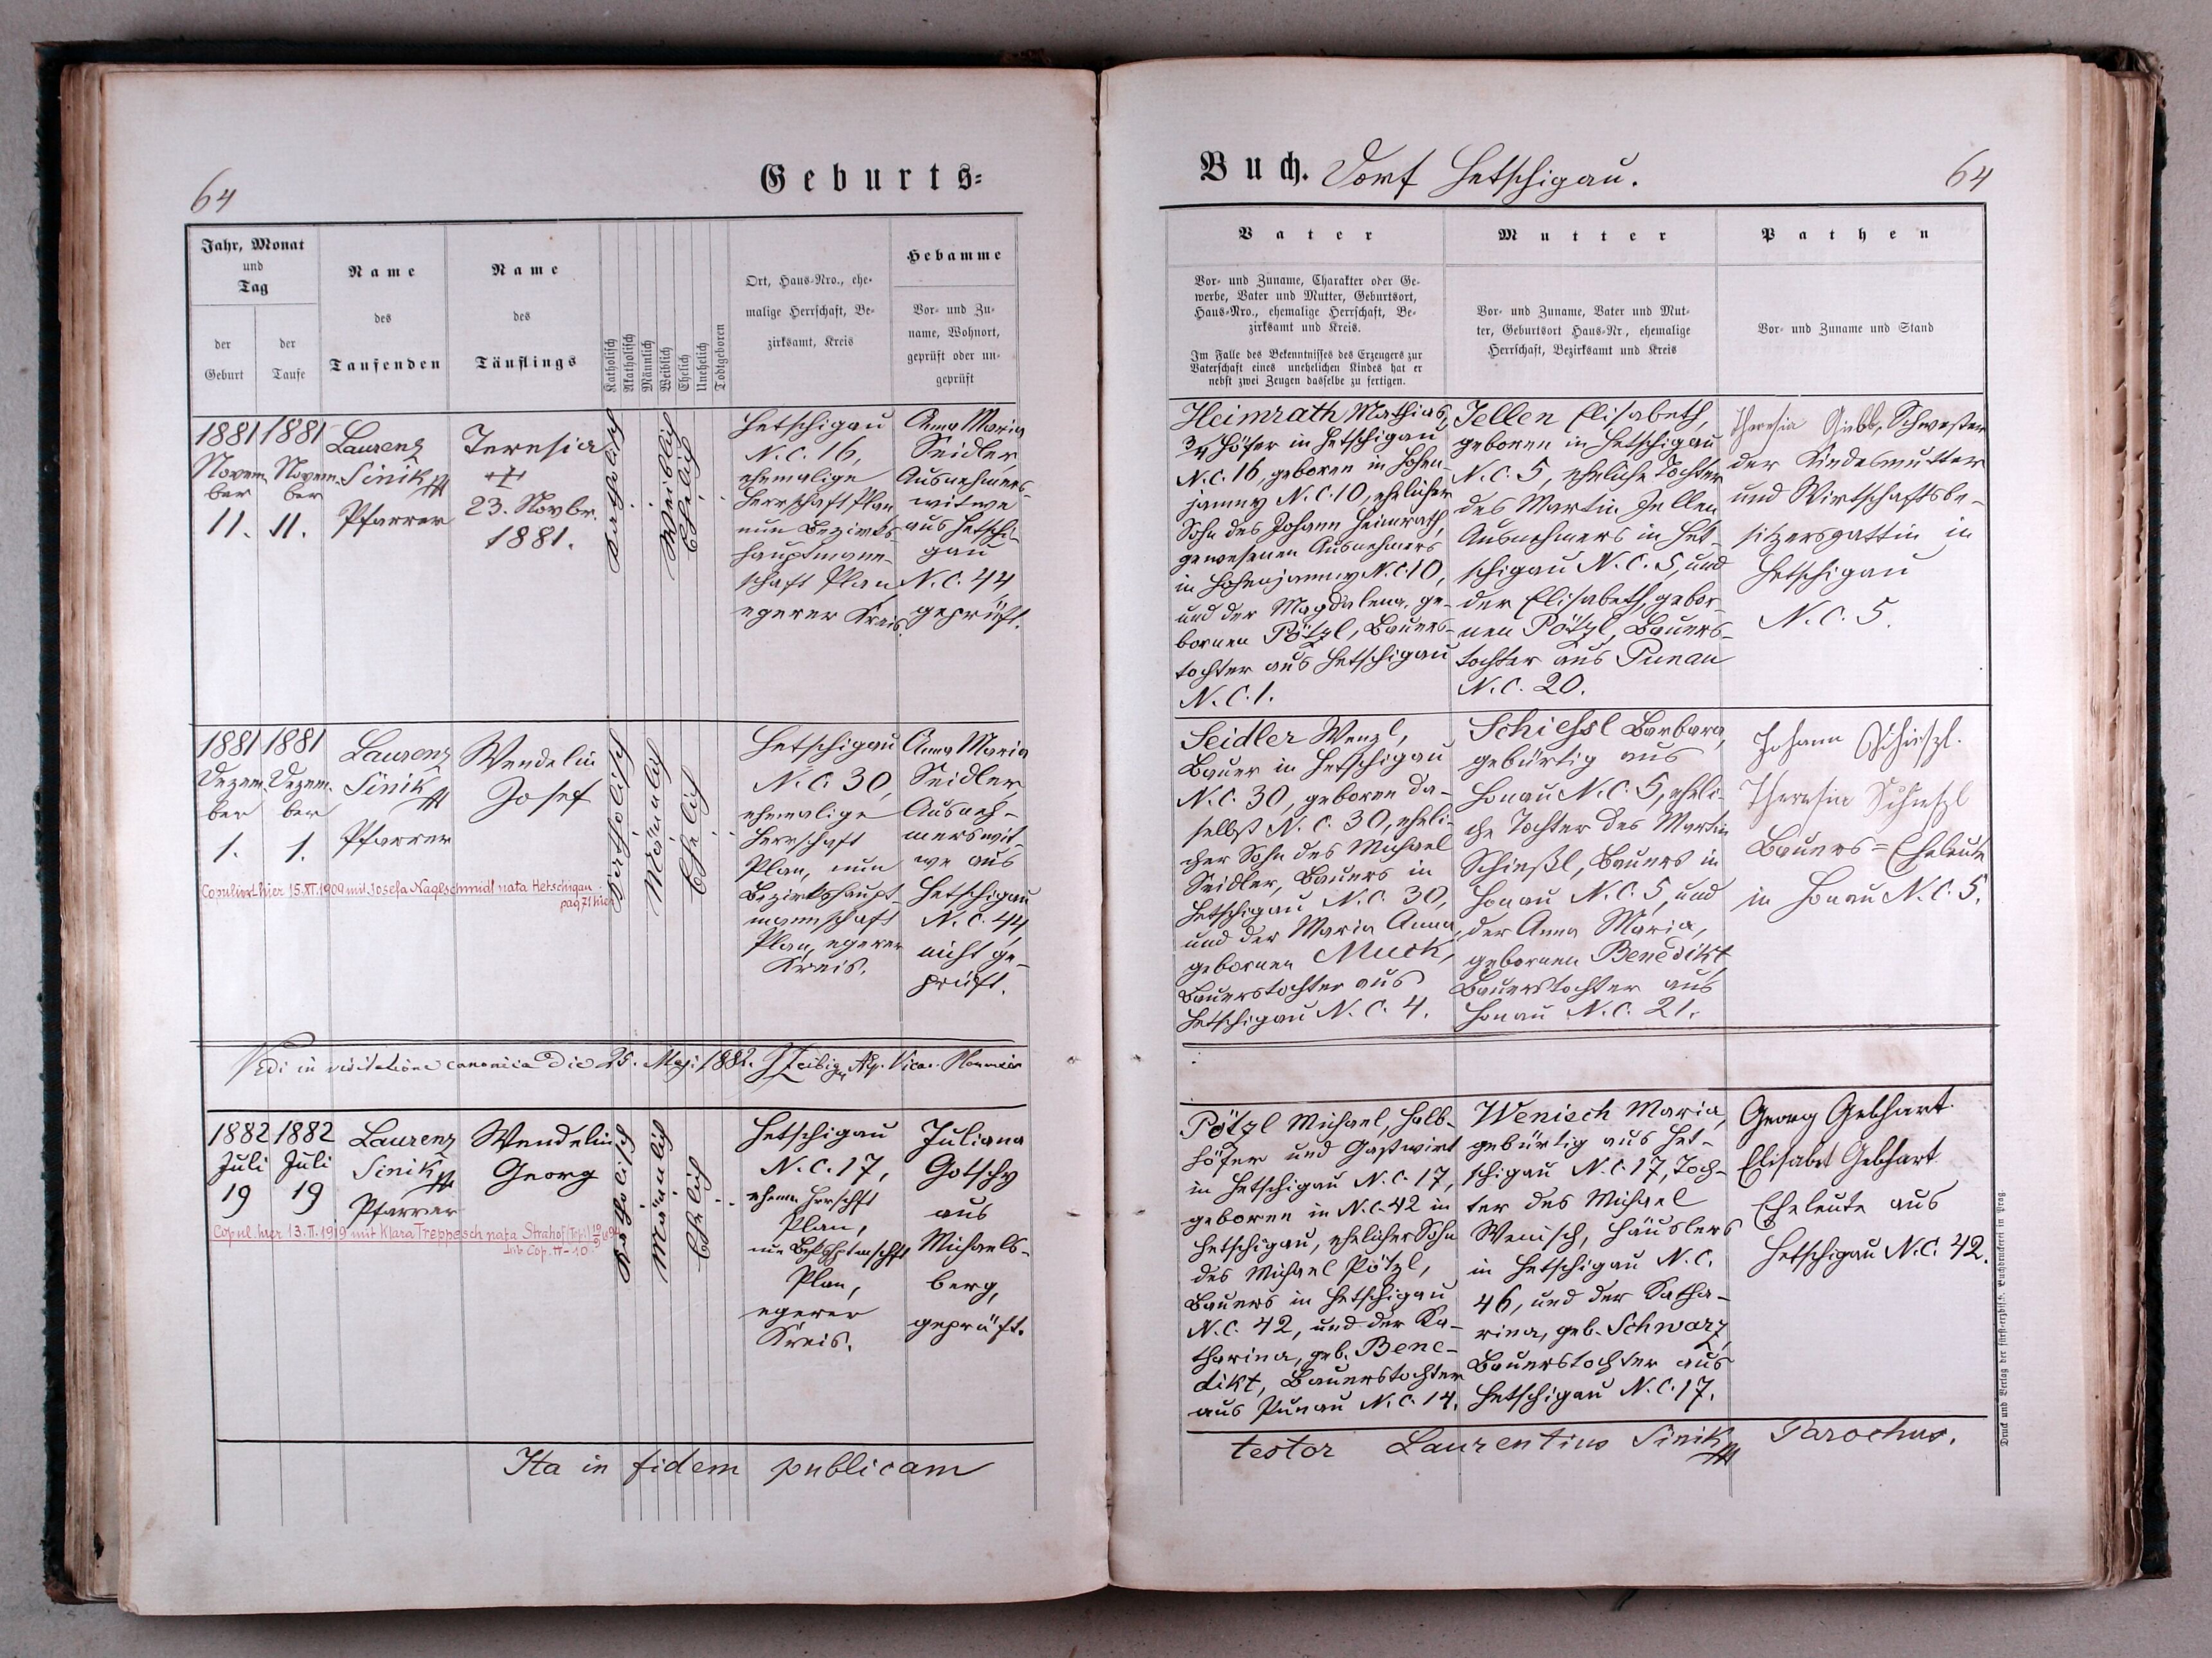 64
Geburts-
Jahr, Monat
und
Tag
der
Geburt
der
Taufe
Name
des
Taufenden
Name
des
Täuflings
Katholisch
Akatholisch
Männlich
Weiblich
Ehelich
Unehelich
Todtgeboren
Ort, Haus-Nro., ehe-
malige Herrschaft, Be-
zirksamt, Kreis
Hebamme
Vor- und Zu-
name, Wohnort,
geprüft oder un-
geprüft
1881
Novem-
ber
11.
1881
Novem-
ber
11.
Laurenz
Sinik
Pfarrer
Teresia
23. Novbr.
1881.
Katholisch
Weiblich
Ehelich
Hetschigau
N.C. 16,
ehemalige
Herrschaft Plan
nun Bezirks-
hauptmann-
schaft Plan
egerer Kreis.
Anna Maria
Seidler,
Ausnehmers-
witwe
aus Hetschi-
gau
N.C. 44
geprüft.
1881
Dezem-
ber
1.
1881
Dezem-
ber
1.
Laurenz
Sinik
Pfarrer
Wendelin
Josef
Katholisch
Mänlich
Ehelich
Hetschigau
N.C. 30,
ehemalige
Herrschaft
Plan, nun
Bezirkshaupt-
mannschaft
Plan, egerer
Kreis.
Anna Maria
Seidler,
Ausneh-
merswit-
we aus
Hetschigau
N.C. 44,
nicht ge-
prüft.
Copuliert hier 15.XI.1909 mit Josefa Naglschmidl nata Hetschigau
pag 71 hier
Vidi in visitatione canonica die 25. Maji 1882.
1882
Juli
19
1882
Juli
19
Laurenz
Sinik
Pfarrer
Wendelin
Georg
Katholisch
Mänlich
Ehelich
Hetschigau
N.C. 17,
ehem. Herrschft
Plan,
nun Bzkshptmschft
Plan,
egerer
Kreis.
Juliana
Gotschy
aus
Michaels-
berg,
geprüft.
Copul. hier 13.II.1919 mit Klara Treppesch nata Strahof
Cop. II-10.
Ita in fidem publicam
Buch. Dorf Hetschigau.
64
Vater
Vor- und Zuname, Charakter oder Ge-
werbe, Vater und Mutter, Geburtsort,
Haus-Nro., ehemalige Herrschaft, Be-
zirksamt und Kreis.
Im Falle des Bekenntnisses des Erzeugers zur
Vaterschaft eines unehelichen Kindes hat er
nebst zwei Zeugen dasselbe zu fertigen.
Mutter
Vor- und Zuname, Vater und Mut-
ter, Geburtsort Haus-Nr, ehemalige
Herrschaft, Bezirksamt und Kreis
Pathen
Vor- und Zuname und Stand
Heimrath Mathias,
3/4 Höfer in Hetschigau
N.C. 16, geboren in Hohen-
jamny N.C. 10, ehelicher
Sohn des Johann Heimrath,
gewesenen Ausnehmers
in Hohenjamny N.C. 10,
und der Magdalena, ge-
bornen Pötzl, Bauers-
tochter aus Hetschigau
N.C. 1.
Jellen Elisabeth,
geboren in Hetschigau
N.C. 5, eheliche Tochter
des Martin Jellen
Ausnehmers in Het-
schigau N.C. 5, und
der Elisabeth, gebor-
nen Pötzl, Bauers-
tochter aus Punau
N.C. 20.
Theresia Schwester
der Kindesmutter
und Wirtschaftsbe-
sitzersgattin in
Hetschigau
N.C. 5.
Seidler Wenzl,
Bauer in Hetschigau
N.C. 30, geboren da-
selbst N.C. 30, eheli-
cher Sohn des Michael
Seidler, Bauers in
Hetschigau N.C. 30,
und der Maria Anna,
gebornen Muck,
Bauerstochter aus
Hetschigau N.C. 4.
Schiessl Barbara,
gebürtig aus
Honau N.C. 5, eheli-
che Tochter des Martin
Schießl, Bauers in
Honau N.C. 5, und
der Anna Maria,
gebornen Benedikt,
Bauerstochter aus
Honau N.C. 21.
Johann Schieszl.
Theresia Schieszl
Bauers=Eheleute
in Honau N.C. 5.
Pötzl Michael, Halb-
höfer und Gastwirt
in Hetschigau N.C. 17,
geboren in N.C. 42 in
Hetschigau, ehelicher Sohn
des Michael Pötzl,
Bauers in Hetschigau
N.C. 42, und der Ka-
tharina, geb. Bene-
dikt, Bauerstochter
aus Punau N.C. 14.
Wenisch Maria,
gebürtig aus Het-
schigau N.C. 17, Toch-
ter des Michael
Wenisch, Häuslers
in Hetschigau N.C.
46, und der Katha-
rina, geb. Schwarz,
Bauerstochter aus
Hetschigau N.C. 17.
Georg Gebhart
Elisabet Gebhart
Eheleute aus
Hetschigau N.C. 42.
testor Laurentius Sinik Parochus.
Druck und Verlag der fürst-erzbisch. Buchdruckerei in Prag.